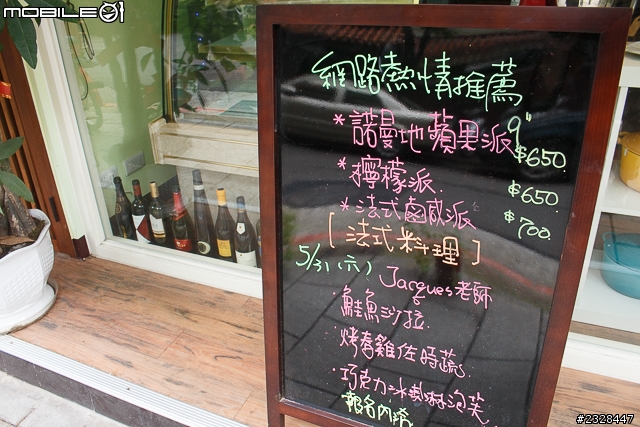 MOBILE01
網路熱情推薦
*諾曼地蘋果派 9" $650.
*檸檬派. $650
*法式鹹派 $700.
[法式料理]
5/31 (六) Jacques老師
·鮭魚沙拉.
·烤春雞佐時蔬.
·巧克力冰淇淋泡芙.
報名內洽
#2328447